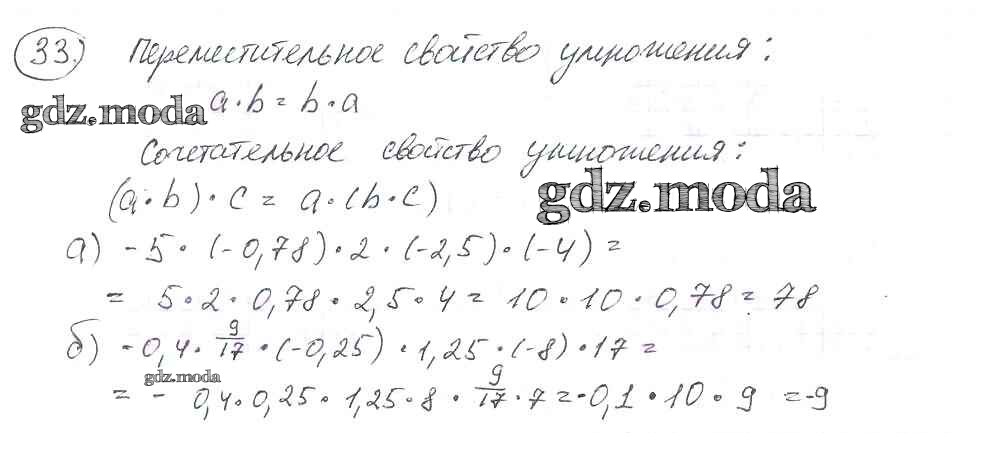 33.) Переместительное свойство умножения:
gdz.moda a·b = b·a
Сочетательное свойство умножения:
(a·b)·c = a·(b·c) gdz.moda
а) -5·(-0,78)·2·(-2,5)·(-4) =
= 5·2·0,78·2,5·4 = 10·10·0,78 = 78
б) -0,4·9/17·(-0,25)·1,25·(-8)·17 =
gdz.moda
= - 0,4·0,25·1,25·8·9/17·7 = -0,1·10·9 = -9